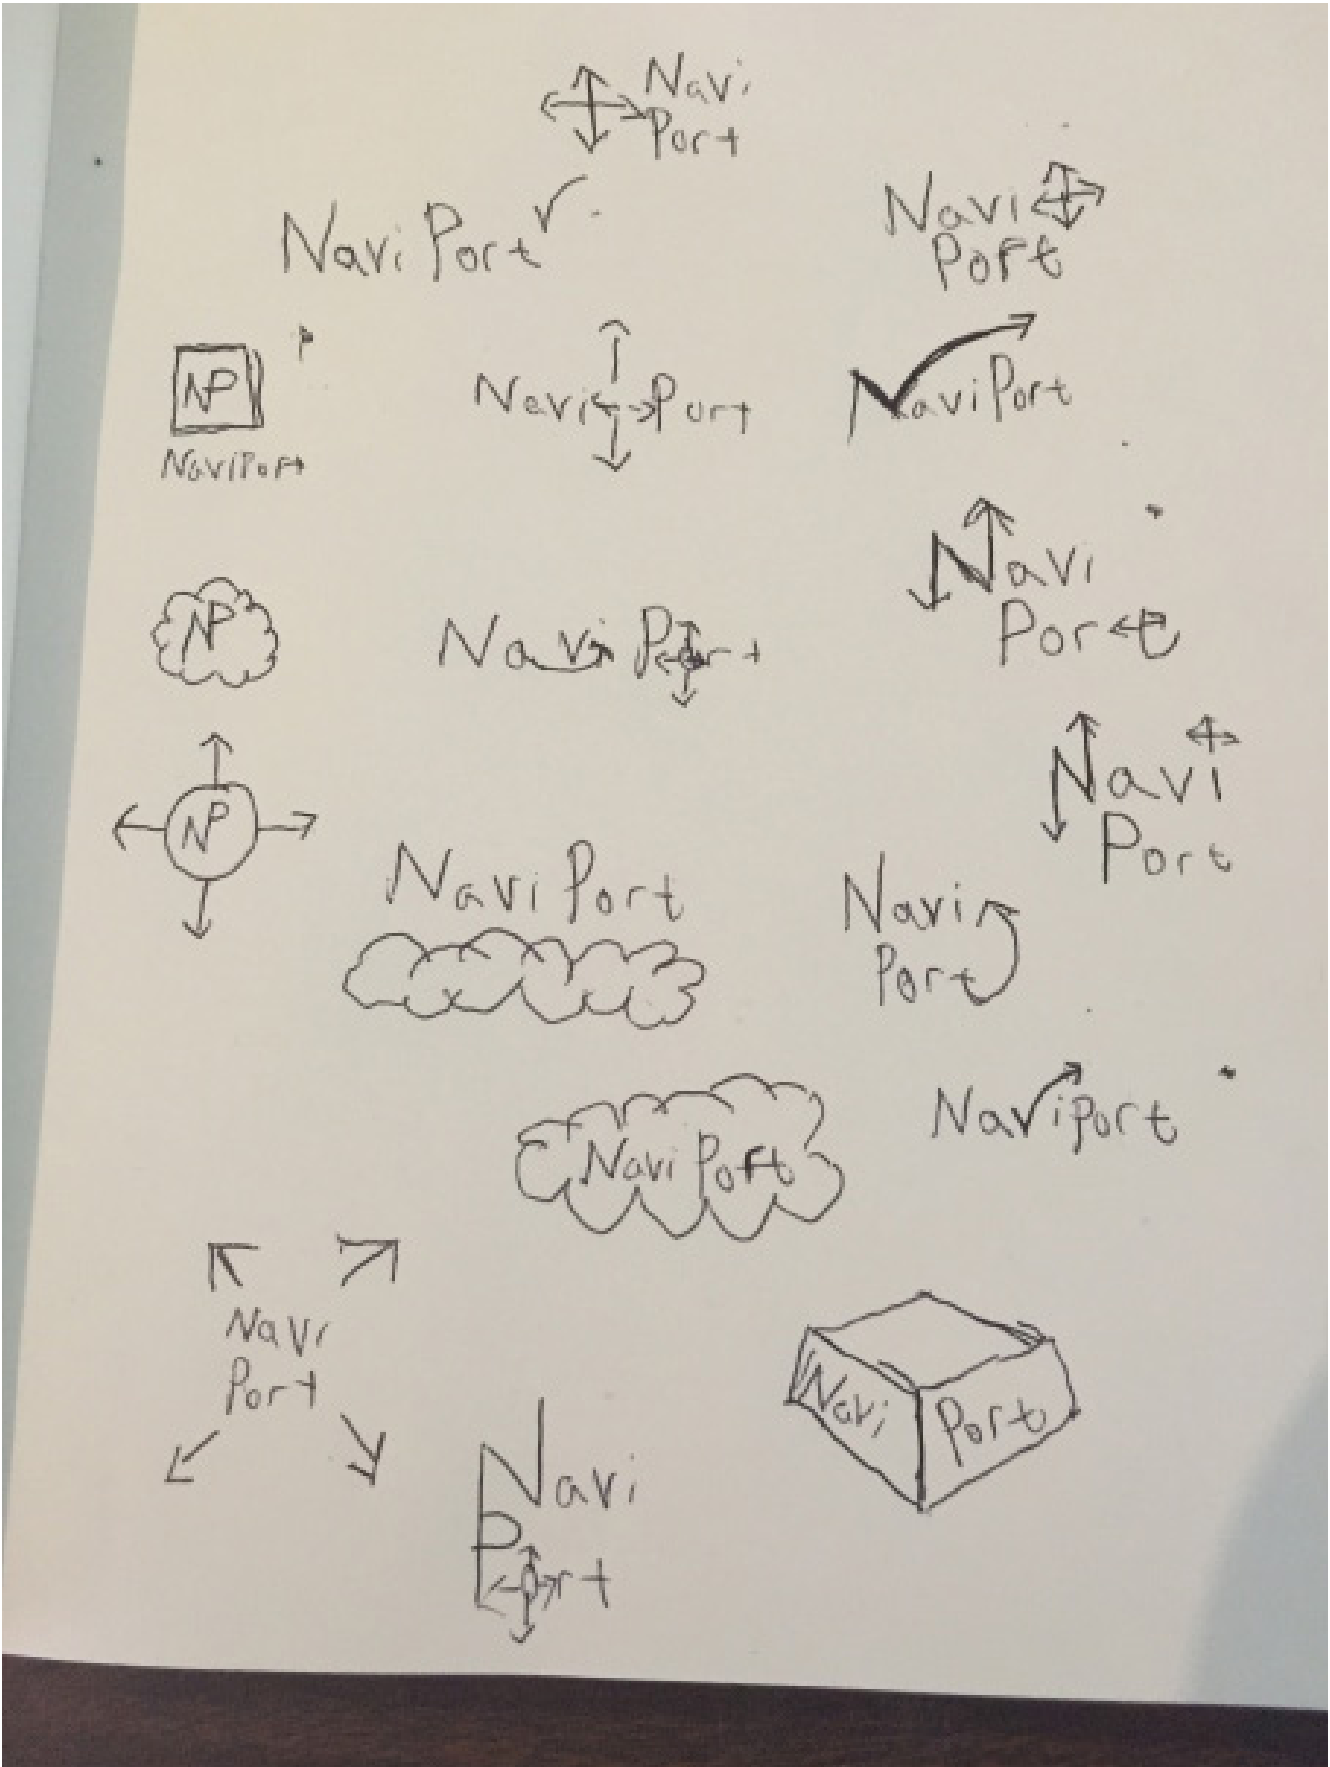 Navi
Port
NaviPort
Navi
Port
NP
NaviPort
Navi Port
NaviPort
Navi
Port
NP
Navi Port
Navi
Port
NP
NaviPort
Navi
Port
NaviPort
Navi Port
Navi
Port
Navi Port
Navi
Port